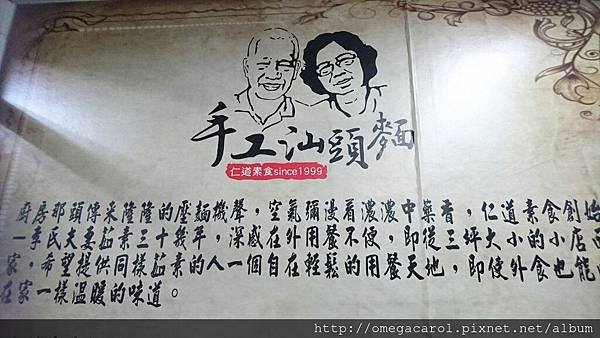 手工汕頭麵
仁道素食since1999
廚房那頭傳來隆隆的壓麵機聲，空氣彌漫着濃濃中藥香，仁道素食創始
一李氏夫妻茹素三十幾年，深感在外用餐不便，即從三坪大小的小店面
家，希望提供同樣茹素的人一個自在輕鬆的用餐天地，即使外食也能
在家一樣溫暖的味道。
http://omegacarol.pixnet.net/album